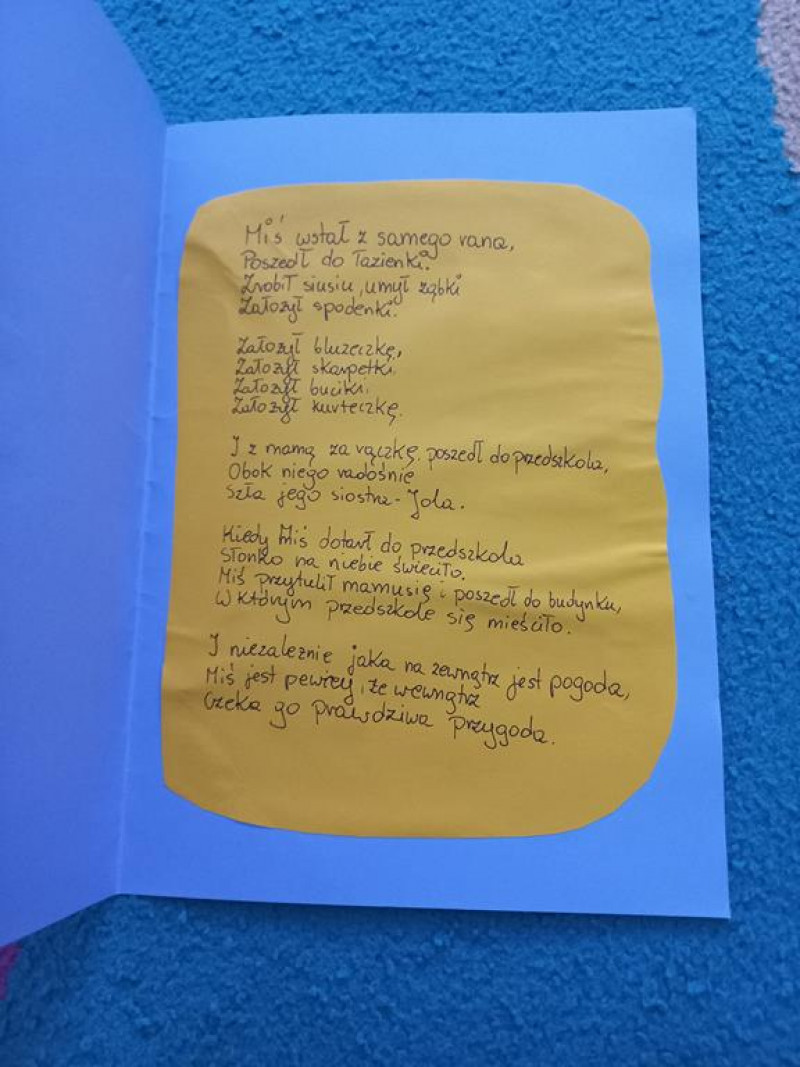 Miś wstał z samego rana,
Poszedł do łazienki.
Zrobił siusiu, umył ząbki
Założył spodenki.
Założył bluzeczkę,
Założył skarpetki.
Założył buciki.
Założył kurteczkę.
I z mamą za rączkę poszedł do przedszkola,
Obok niego radośnie
Szła jego siostra - Jola.
Kiedy Miś dotarł do przedszkola
Słonko na niebie świeciło.
Miś przytulił mamusię i poszedł do budynku,
W którym przedszkole się mieściło.
I niezależnie jaka na zewnątrz jest pogoda,
Miś jest pewny, że wewnątrz
Czeka go prawdziwa przygoda.